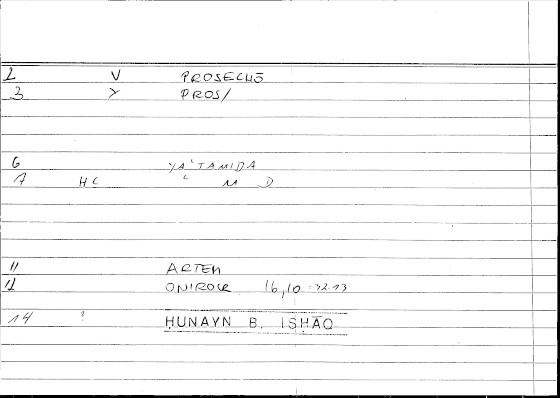 2 V PROSECHŌ
3 Y PROS/
6 YAʿTAMIDA
7 HC ʿ M D
11 ARTEM
12 ONIROCR 16,10
14 ? HUNAYN B. ISḤĀQ